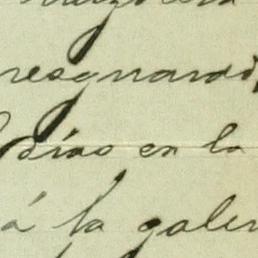 resguardo,
días en la
á la galer